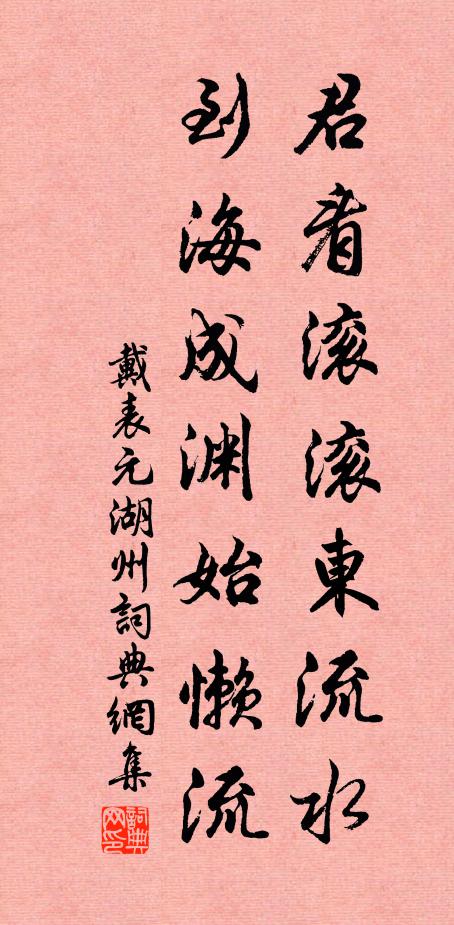 君看滚滚東流水
到海成渊始懒流
戴表元湖州詞典網集
詞典网印